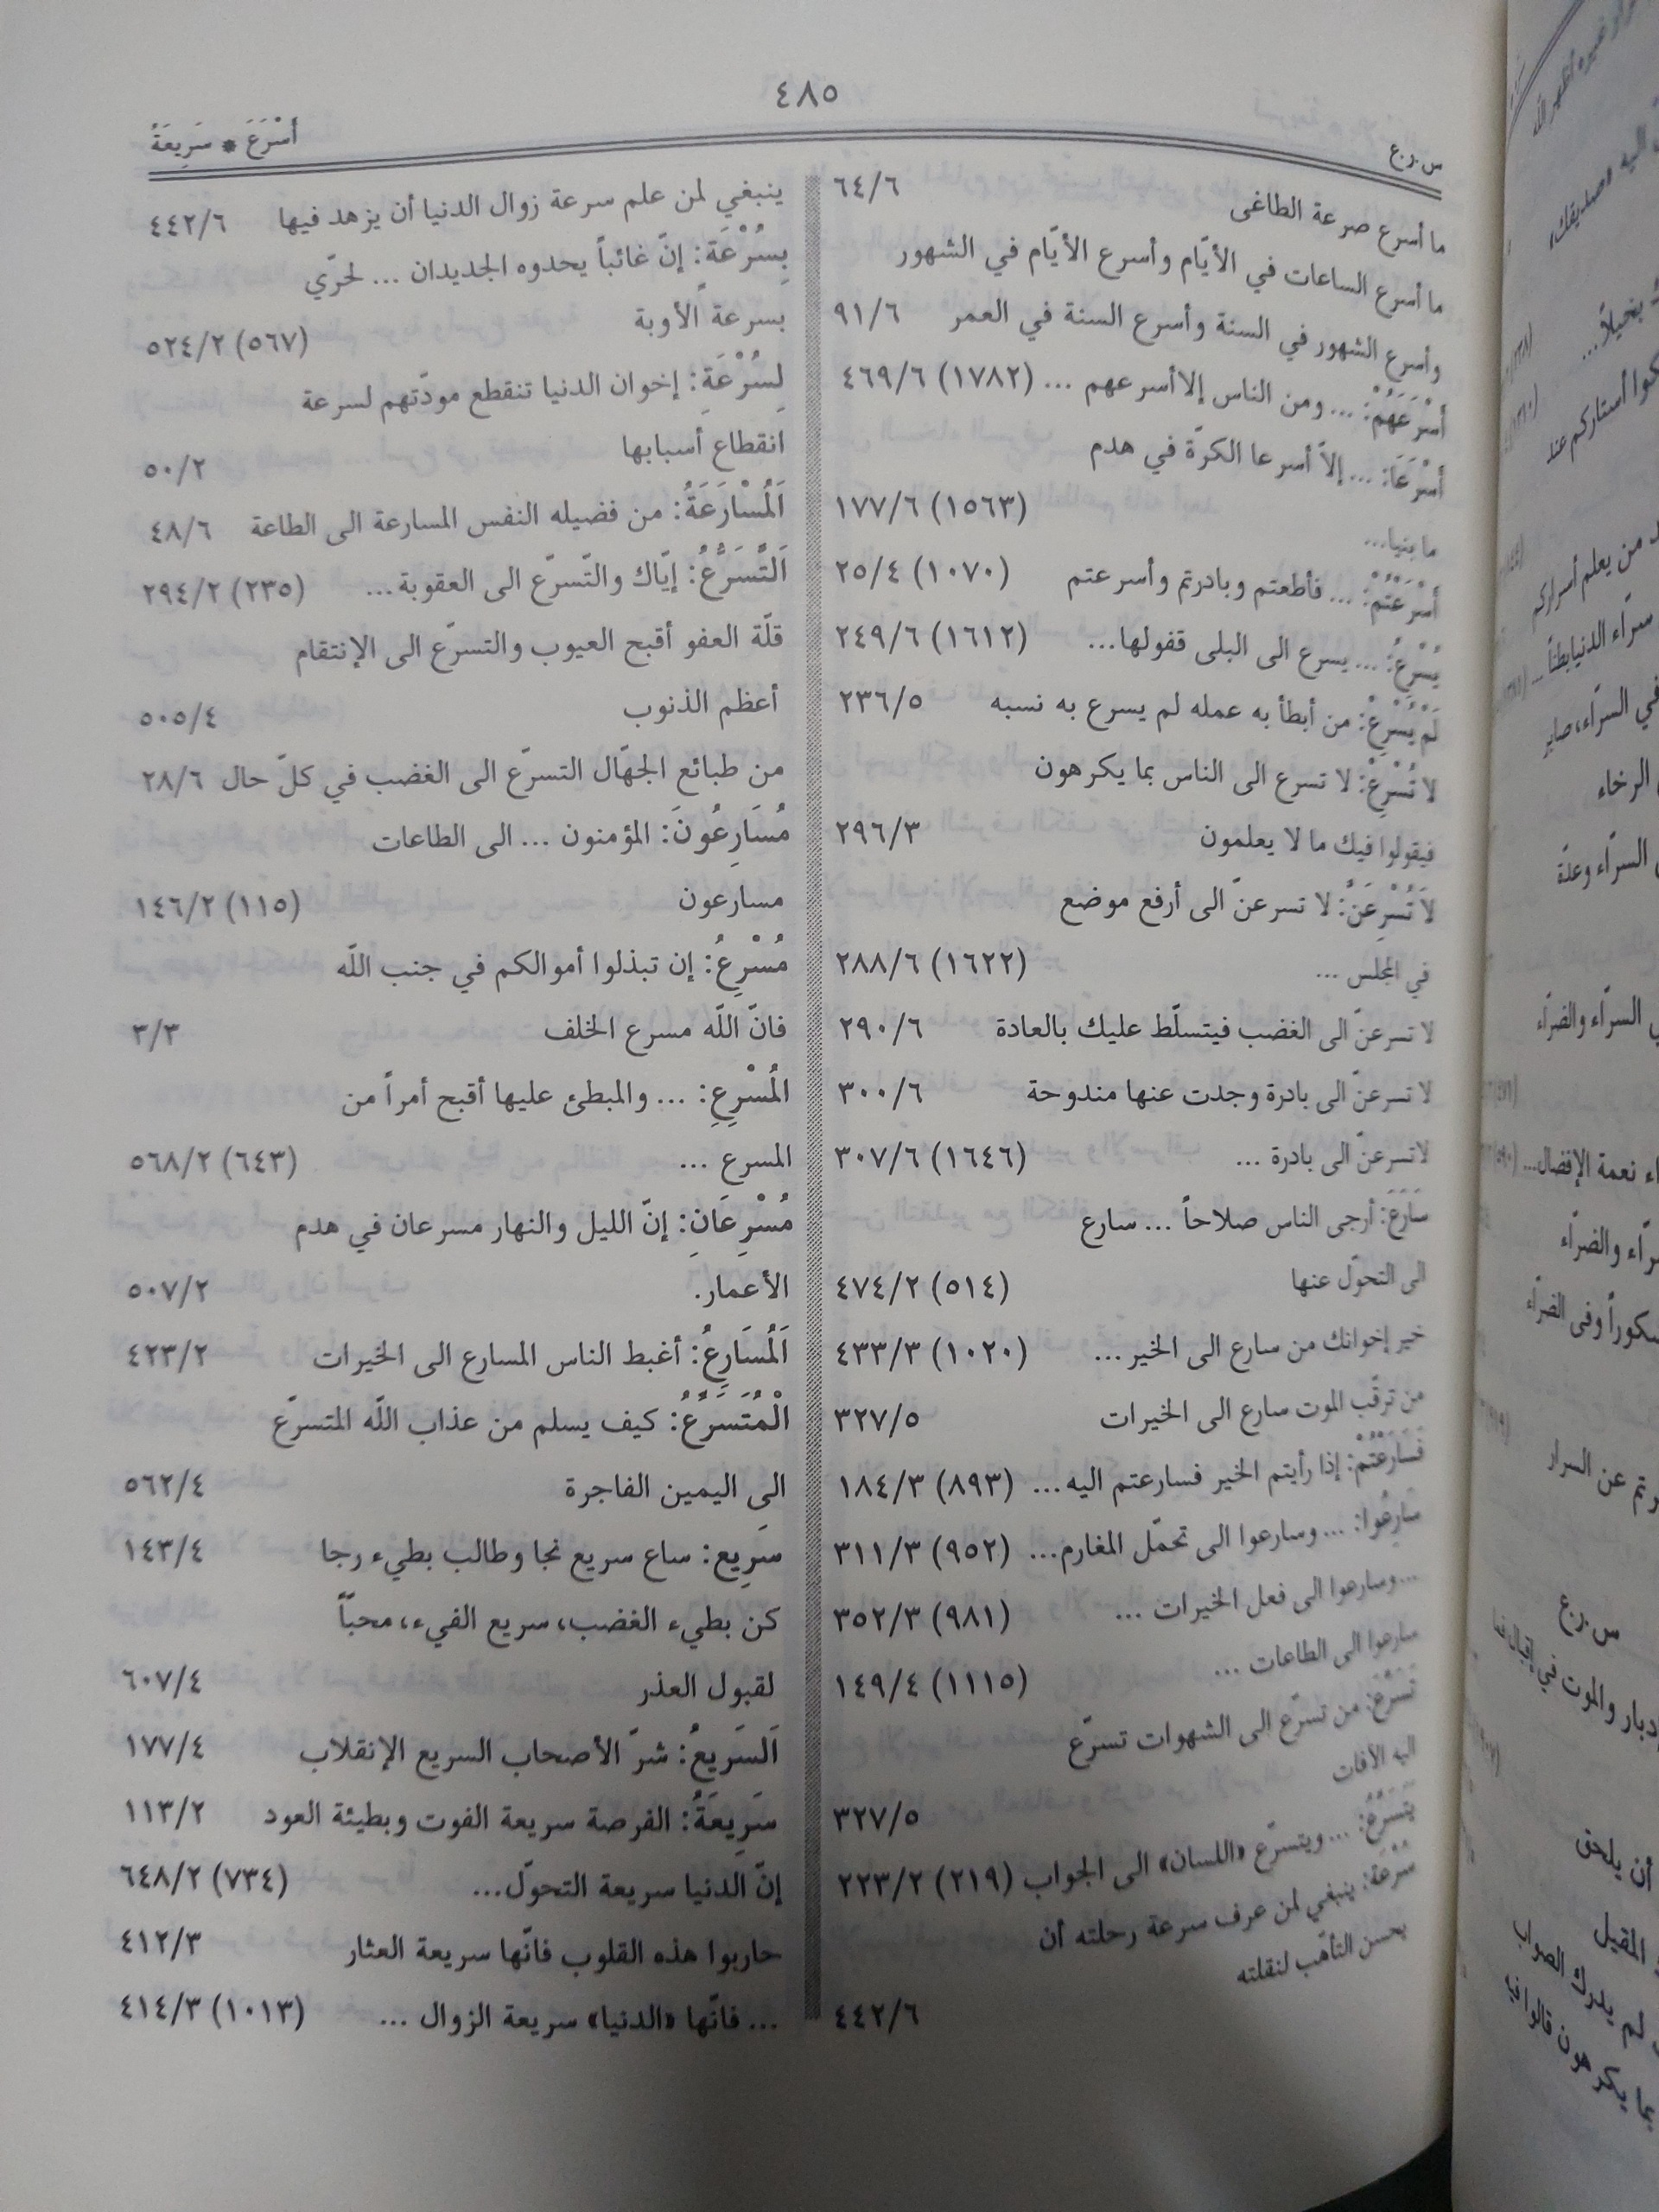 ٤٨٥
س.ر.ع
أَسْرَعَ * سَرِيعَةُ
ما أسرع صرعة الطاغى ٦٤/٦
ما أسرع الساعات في الأيّام وأسرع الأيّام في الشهور
وأسرع الشهور في السنة وأسرع السنة في العمر ٩١/٦
أَسْرَعَهُمْ: ... ومن الناس إلا أسرعهم ... (١٧٨٢) ٤٦٩/٦
أَسْرَعَا: ... إلاّ أسرعا الكرّة في هدم
ما بنيا... (١٥٦٣) ١٧٧/٦
أَسْرَعْتُمْ: ... فأطعتم وبادرتم وأسرعتم (١٠٧٠) ٢٥/٤
يُسْرِعُ: ... يسرع الى البلى قفولها... (١٦١٢) ٢٤٩/٦
لَمْ يُسْرِعْ: من أبطأ به عمله لم يسرع به نسبه ٢٣٦/٥
لا تُسْرِعْ: لا تسرع الى الناس بما يكرهون
فيقولوا فيك ما لا يعلمون ٢٩٦/٣
لاَ تُسْرِعَنَّ: لا تسرعنّ الى أرفع موضع
في المجلس ... (١٦٢٢) ٢٨٨/٦
لا تسرعنّ الى الغضب فيتسلّط عليك بالعادة ٢٩٠/٦
لا تسرعنّ الى بادرة وجدت عنها مندوحة ٣٠٠/٦
لاتسرعنّ الى بادرة ... (١٦٤٦) ٣٠٧/٦
سَارَعَ: أرجى الناس صلاحاً ... سارع
الى التحوّل عنها (٥١٤) ٤٧٤/٢
خير إخوانك من سارع الى الخير ... (١٠٢٠) ٤٣٣/٣
من ترقّب الموت سارع الى الخيرات ٣٢٧/٥
فَسَارَعْتُمْ: إذا رأيتم الخير فسارعتم اليه ... (٨٩٣) ١٨٤/٣
سَارِعُوا: ... وسارعوا الى تحمّل المغارم... (٩٥٢) ٣١١/٣
... وسارعوا الى فعل الخيرات ... (٩٨١) ٣٥٢/٣
سارعوا الى الطاعات ... (١١١٥) ١٤٩/٤
تَسَرَّعَ: من تسرّع الى الشهوات تسرّع
اليه الآفات ٣٢٧/٥
يَتَسَرَّعُ: ... ويتسرّع «اللسان» الى الجواب (٢١٩) ٢٢٣/٢
سُرْعَةَ: ينبغي لمن عرف سرعة رحلته أن
يحسن التأهّب لنقلته ٤٤٢/٦
ينبغي لمن علم سرعة زوال الدنيا أن يزهد فيها ٤٤٢/٦
بِسُرْعَةِ: إنّ غائباً يحدوه الجديدان ... لحرّي
بسرعة الأوبة (٥٦٧) ٥٢٤/٢
لِسُرْعَةِ: إخوان الدنيا تنقطع مودّتهم لسرعة
انقطاع أسبابها ٥٠/٢
اَلْمُسْارَعَةُ: من فضيله النفس المسارعة الى الطاعة ٤٨/٦
اَلتَّسَرُّعُ: إيّاك والتّسرّع الى العقوبة... (٢٣٥) ٢٩٤/٢
قلّة العفو أقبح العيوب والتسرّع الى الإنتقام
أعظم الذنوب ٥٠٥/٤
من طبائع الجهّال التسرّع الى الغضب في كلّ حال ٢٨/٦
مُسَارِعُونَ: المؤمنون ... الى الطاعات
مسارعون (١١٥) ١٤٦/٢
مُسْرِعُ: إن تبذلوا أموالكم في جنب اللّه
فانّ اللّه مسرع الخلف ٣/٣
الْمُسْرِعِ: ... والمبطئ عليها أقبح أمراً من
المسرع ... (٦٤٣) ٥٦٨/٢
مُسْرِعَانِ: إنّ الليل والنهار مسرعان في هدم
الأعمار. ٥٠٧/٢
اَلْمُسَارِعُ: أغبط الناس المسارع الى الخيرات ٤٢٣/٢
الْمُتَسَرِّعُ: كيف يسلم من عذاب اللّه المتسرّع
الى اليمين الفاجرة ٥٦٢/٤
سَرِيع: ساع سريع نجا وطالب بطيء رجا ١٤٣/٤
كن بطيء الغضب، سريع الفيء، محبّاً
لقبول العذر ٦٠٧/٤
اَلسَرِيعُ: شرّ الأصحاب السريع الإنقلاب ١٧٧/٤
سَرِيعَةُ: الفرصة سريعة الفوت وبطيئة العود ١١٣/٢
إنّ الدنيا سريعة التحوّل... (٧٣٤) ٦٤٨/٢
حاربوا هذه القلوب فانّها سريعة العثار ٤١٢/٣
... فانّها «الدنيا» سريعة الزوال ... (١٠١٣) ٤١٤/٣